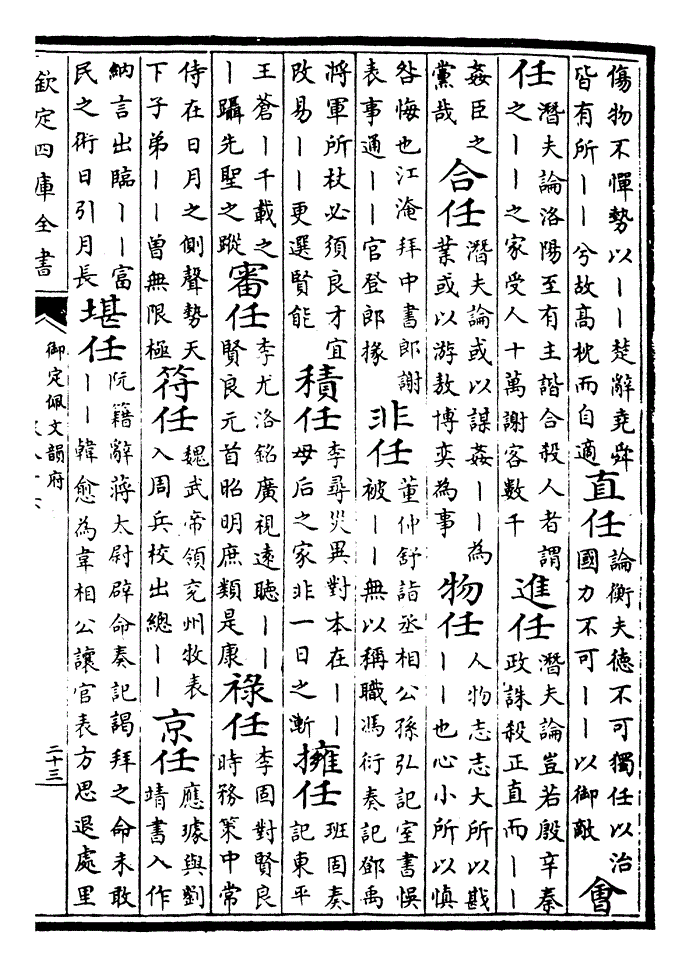 傷物不憚勢以丨丨楚辭堯舜
皆有所丨丨兮故高枕而自適
直任
論衡夫德不可獨任以治
國力不可丨丨以御敵
會
任
潛夫論洛陽至有主諧合殺人者謂
之丨丨之家受人十萬謝客數千
進任
潛夫論豈若殷辛秦
政誅殺正直而丨丨
姦臣之
黨哉
合任
潛夫論或以謀姦丨丨為
業或以游敖博奕為事
物任
人物志志大所以戡
丨丨也心小所以慎
咎悔也江淹拜中書郎謝
表事通丨丨官登郎掾
非任
董仲舒詣丞相公孫弘記室書悞
被丨丨無以稱職馮衍奏記鄧禹
將軍所杖必須良才宜
改易丨丨更選賢能
積任
李尋災異對本在丨丨
母后之家非一日之漸
擁任
班固奏
記東平
王蒼丨千載之
丨躡先聖之蹤
審任
李尤洛銘廣視遠聽丨丨
賢良元首昭明庶類是康
祿任
李固對賢良
時務策中常
侍在日月之側聲勢天
下子弟丨丨曾無限極
符任
魏武帝領兖州牧表
入周兵校出總丨丨
京任
應璩與劉
靖書入作
納言出臨丨丨富
民之術日引月長
堪任
阮籍辭蔣太尉辟命奏記謁拜之命未敢
丨丨韓愈為韋相公讓官表方思退處里
欽定四庫全書
御定佩文韻府
二十三